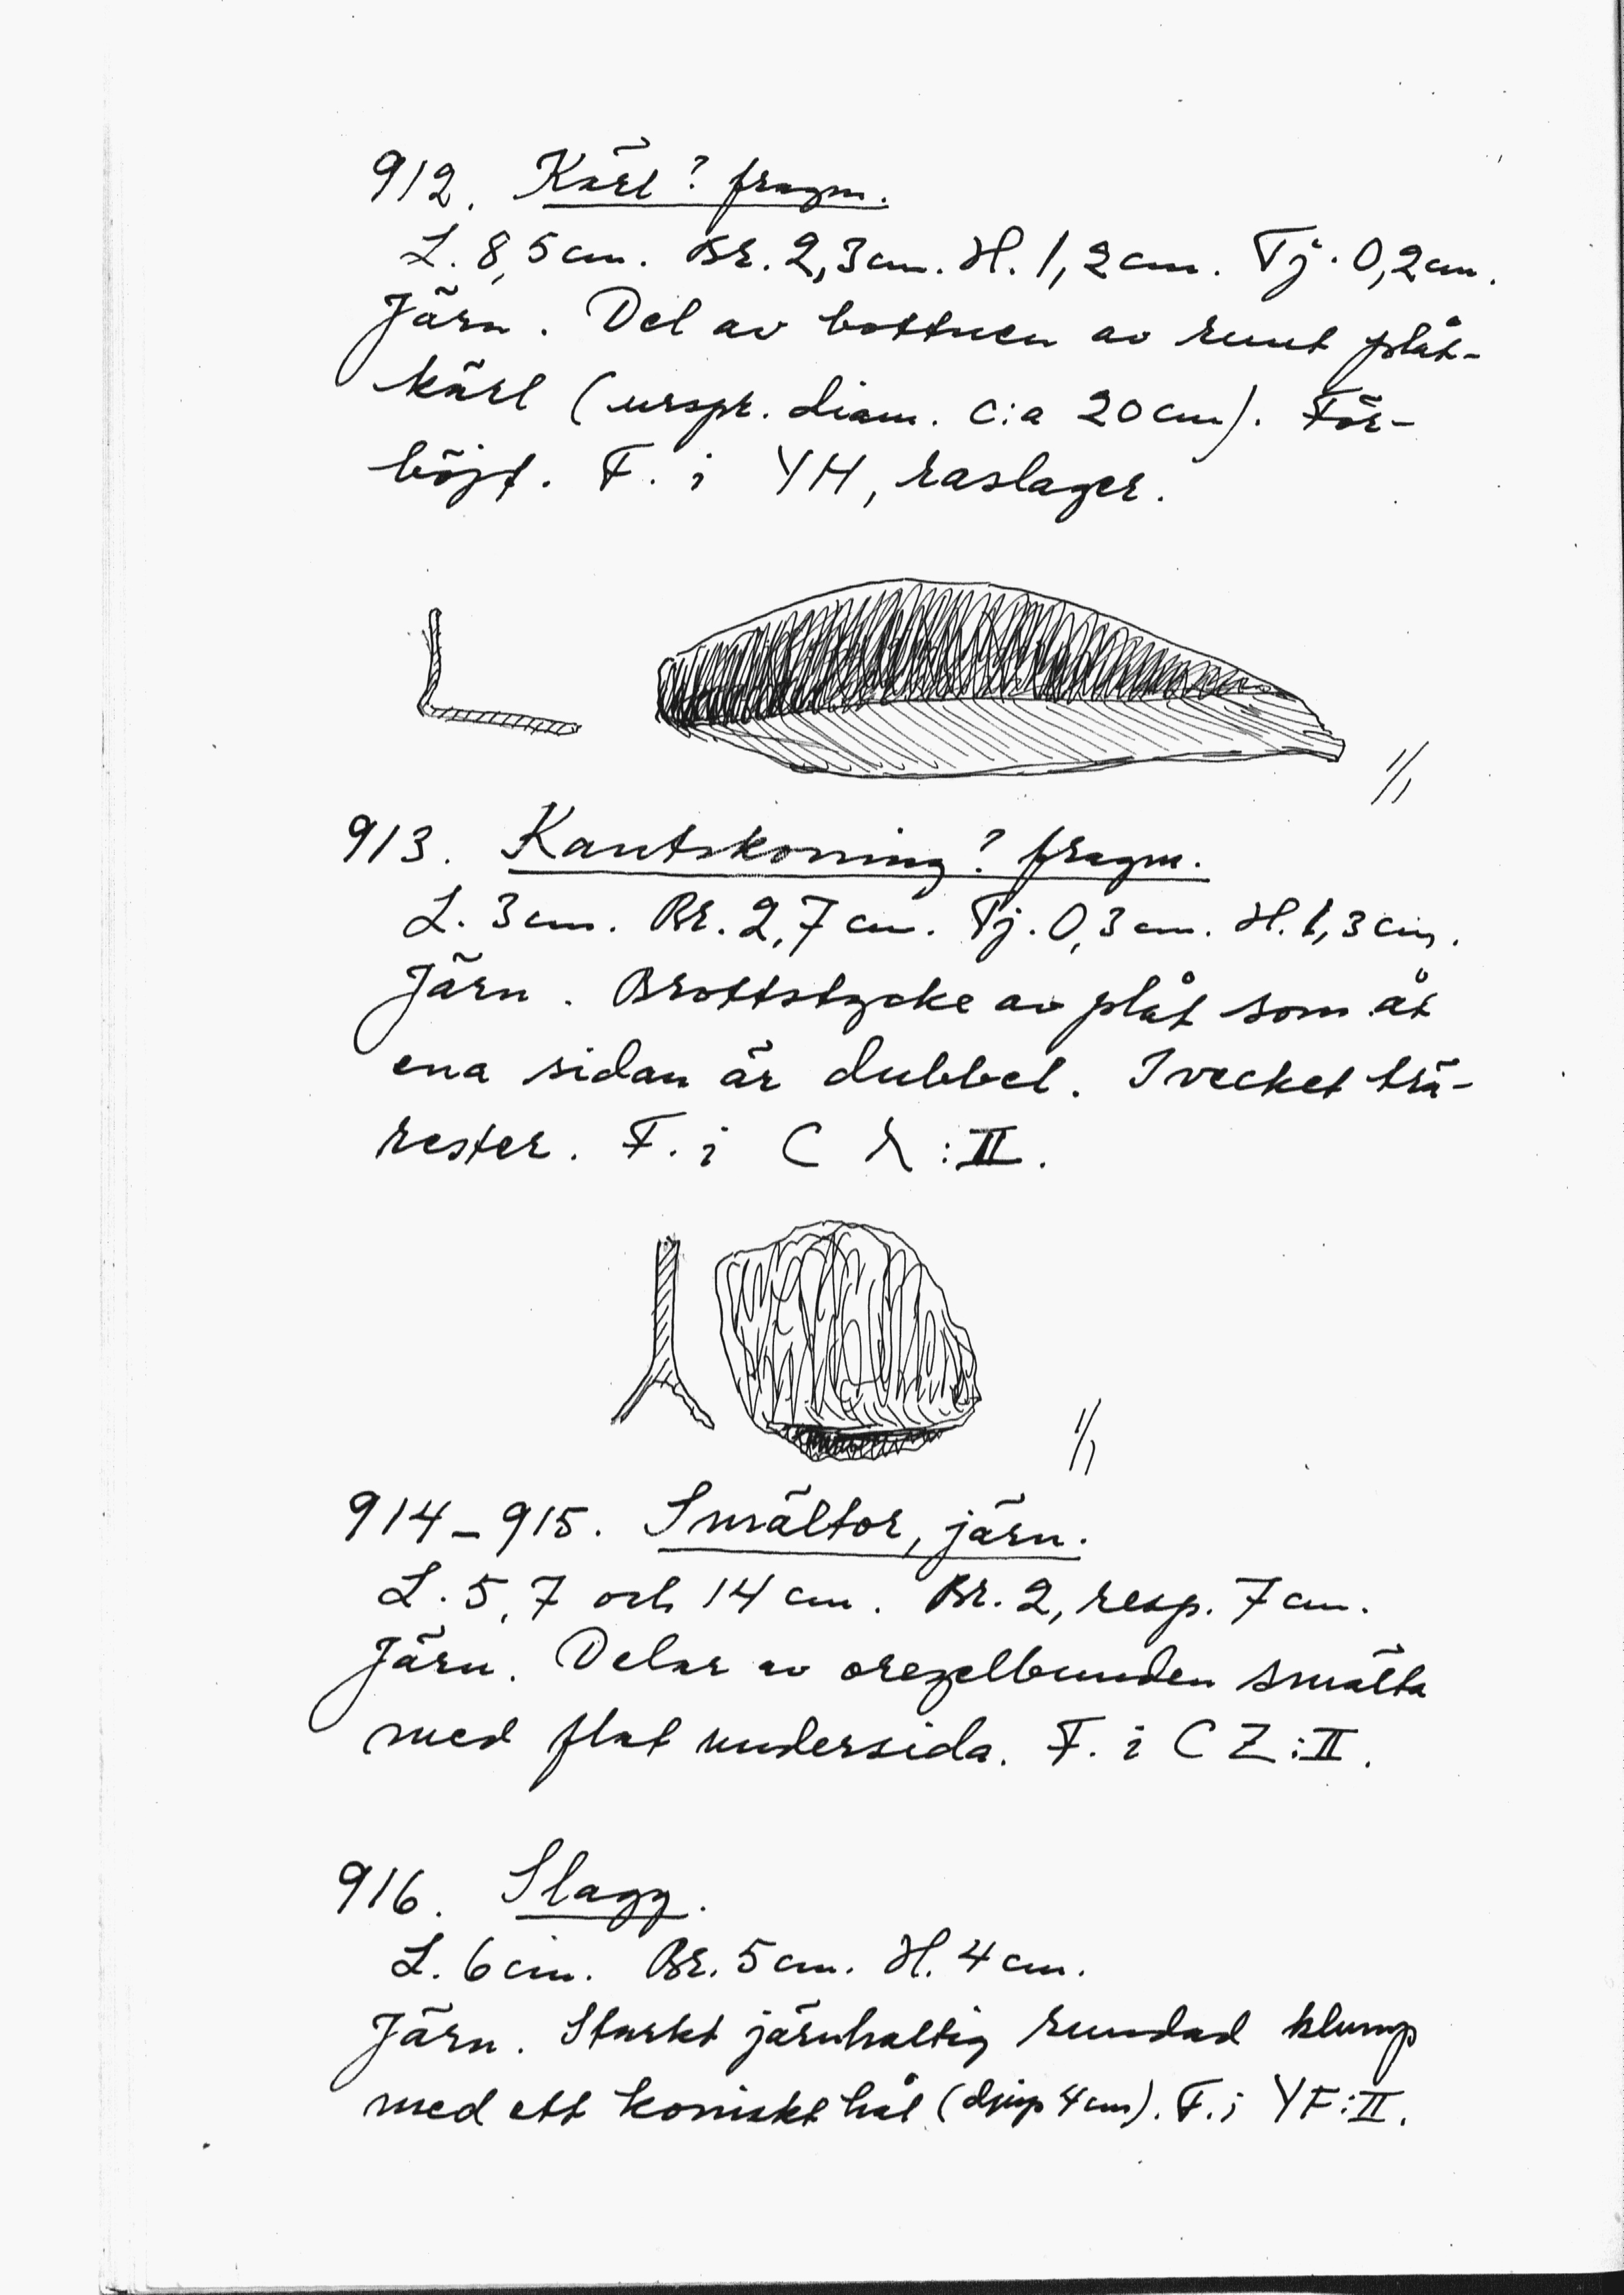 912. Kärl? fragm.
L. 8,5 cm. Br. 2,3 cm. H. 1,2 cm. Tj. 0,2 cm.
Järn. Del av bottnen av runt plåt-
kärl (urspr. diam. c:a 20 cm). För-
böjt. F. i YH, raslager.
1/1
913. Kantskoning? fragm.
L. 3 cm. Br. 2,7 cm. Tj. 0,3 cm. H. 1,3 cm.
Järn. Brottstycke av plåt som åt
ena sidan är dubbel. I vecket trä-
rester. F. i C :II.
1/1
914-915. Smältor, järn.
L. 5,7 och 14 cm. Br. 2, resp. 7 cm.
Järn. Delar av oregelbunden smälta
med flat undersida. F. i CZ:II.
916. Slagg.
L. 6 cm. Br. 5 cm. H. 4 cm.
Järn. Starkt järnhaltig rundad klump
med ett koniskt hål (djup 4 cm). F. i YF:II.